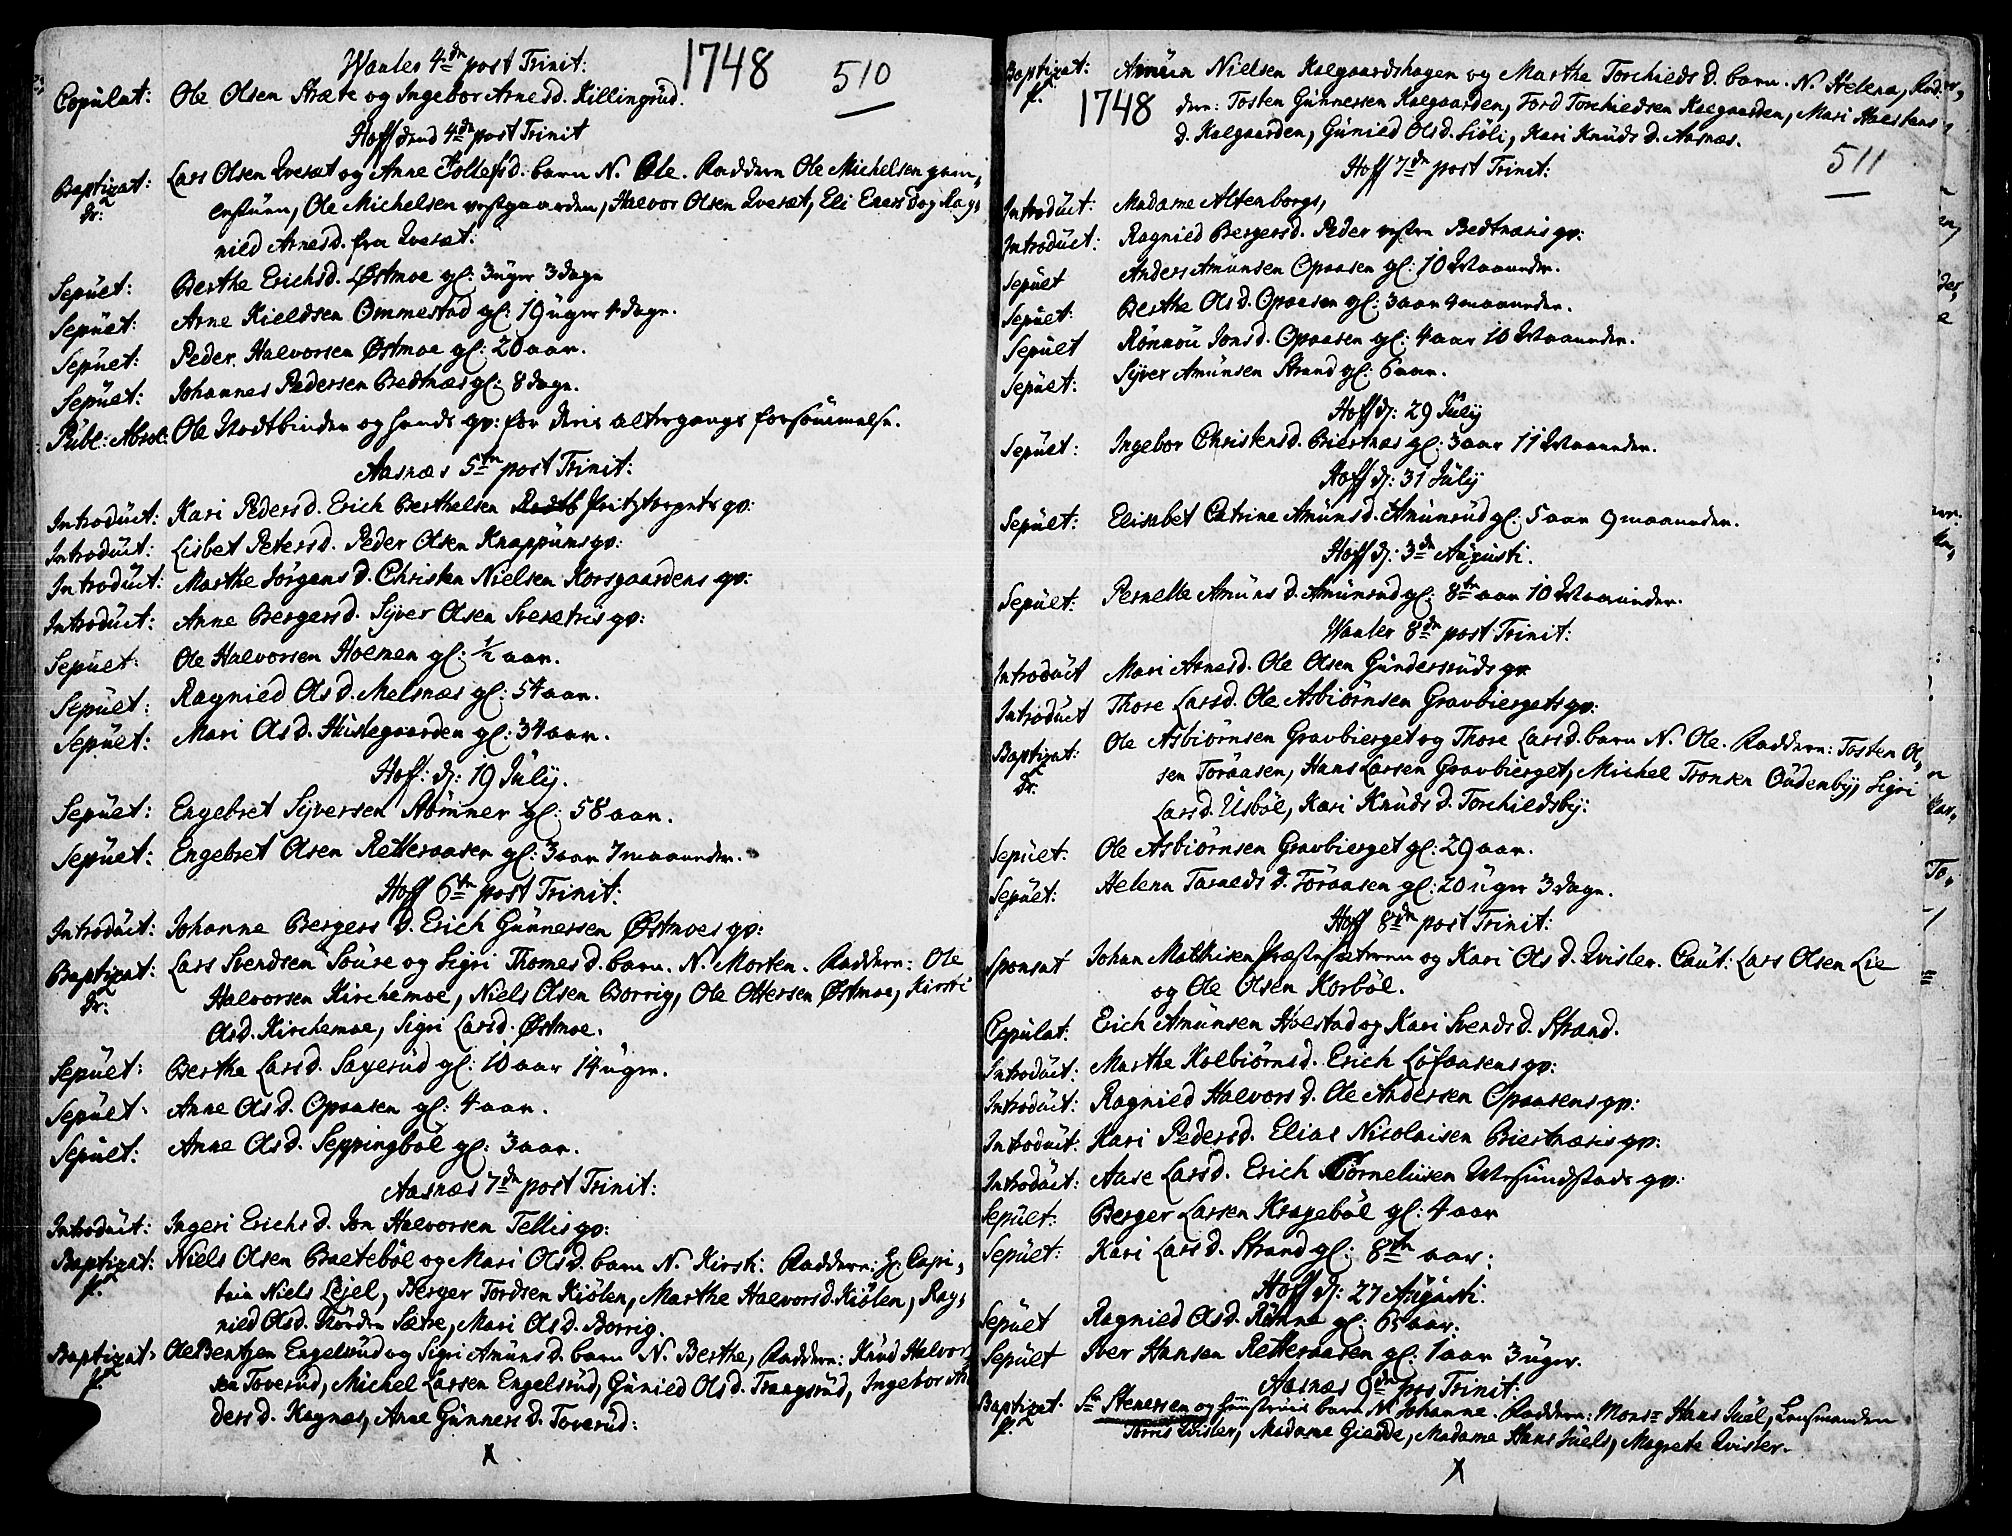 1748
510
Waaler 4de post Trinit:
Copulat: Ole Olsen Stræte og Ingebor Arnesd. Killingrud.
Hoff dend 4de post Trinit
Baptizat: Lars Olsen Qveset og Anne Tollefsd. barn N. Ole. Faddern Ole Michelsen gam,,
dr. enstuen, Ole Michelsen vestgaarden, Halvor Olsen Qveset, Eli Evers d og Rag,,
nild Arnesd. fra Qveset:
Sepult: Berthe Erichsd. Østmoe gl: 3 uger 3 dage
Sepult: Arne Kieldsen Ommestad gl: 19 uger 4 dage.
Sepult: Peder Halvorsen Østmoe gl: 20 aar.
Sepult: Johannes Pedersen Bredtnæs gl: 8 dage.
Publ: Absol: Ole Nodtbinder og hands qv: for deris altergangs forsømmelse.
Aasnæs 5te post Trinit:
Introduct: Kari Pedersd. Erich Berthelsen Pritztorpets qv:
Introduct: Lisbet Petersd. Peder Olsen Knappuns qv:
Introduct: Marthe Jørgens d. Christen Nielsen Korsgaardens qv:
Introduct: Anne Bergersd. Syver Olsen Sveætris qv:
Sepult: Ole Halvorsen Holmen gl: 1/2 aar.
Sepult: Ragnild Ols d. Melsnæs gl: 54 aar.
Sepult: Mari Ols d. Huusegaarden gl: 34 aar.
Hof: d: 19 July.
Sepult: Engebret Syversen Rømner gl: 58 aar.
Sepult: Engebret Olsen Retteraasen gl: 3 aar 7 maaneder.
Hoff 6te post Trinit:
Introduct: Johanne Bergers d. Erich Gunnersen Østmoes qv:
Baptizat: Lars Svendsen Soure og Sigri Thomes d. barn. N. Morten. Faddern: Ole
dr. Halvorsen Kirchemoe, Niels Olsen Borrig, Ole Ottersen Østmoe, Kirsti
Olsd. Kirchemoe, Sigri Larsd. Østmoe.
Sepult: Berthe Larsd. Sagerud gl: 10 aar 14 uger.
Sepult: Anne Ols d. Opaasen gl: 4 aar.
Sepult: Anne Ols d. Seppingbøl gl: 3 aar.
Aasnæs 7de post Trinit:
Introduct: Ingeri Erichs d. Jon Halvorsen Tellis qv:
Baptizat: Niels Olsen Braatebøl og Mari Ols d. barn N. Kirsti: Faddern: Hr Capi,,
p. tain Niels Lejel, Berger Tordsen Kiølen, Marthe Halvors d. Kiølen, Rag,,
nild Olsd. Nørden Sætre, Mari Ols d. Borrig.
Baptizat: Ole Bentzen Engelsrud og Sigri Amuns d. barn N. Berthe, Faddern: Knud Halvor,,
p. sen Toverud, Michel Larsen Engelsrud, Gunild Ols d. Trangsrud, Ingebor An
ders d. Kagnæs, Anne Gunners d. Toverud:
x
Baptizat: Amün Nielsen Kalgaardshagen og Marthe Torchieds d. barn. N. Helena, Fad,,
p. 1748 dern: Tosten Gunnersen Kalgaarden, Tord Torchiedsen Kalgaarden, Mari Haltens
d. Kalgaarden, Gunild Ols d. Liøli, Kari Knuds d. Aasnæs.
511
Hoff 7de post Trinit:
Introduct: Madame Altenborgs,
Introduct: Ragnied Bergersd. Peder vestre Bedtnæsis qv:
Sepult Anders Amunsen Opaasen gl: 10 Maaneder.
Sepult: Berthe Ols d. Opaasen gl: 3 aar 4 maaneder.
Sepult Rønnou Jons d. Opaasen gl: 4 aar 10 Maaneder.
Sepult: Syver Amunsen Strand gl: 6 aar.
Hoff d: 29 July
Sepult: Ingebor Christensd. Briestnæs gl: 3 aar 11 Maaneder.
Hoff d: 31 July
Sepult: Elisabet Catrine Amuns d. Amunrud gl: 5 aar 9 maaneder.
Hoff d: 3de Augusti.
Sepult: Pernelle Amuns d. Amunrud gl: 8te aar 10 Maaneder.
Waaler 8de post Trinit:
Introduct Mari Arnesd. Ole Olsen Gundersruds qv
Introduct Thore Larsd. Ole Asbiørnsen Gravbiergets qv:
Baptizat: Ole Asbiørnsen Gravbierget og Thore Larsd. barn N. Ole. Faddern: Tosten Ol,,
dr. sen Toraasen, Hans Larsen Gravbierget, Michel Tronsen Oudenby, Sigri
Larsd. Usbøl, Kari Knuds d. Torchildsby:
Sepult: Ole Asbiørnsen Gravbierget gl: 29 aar.
Sepult: Helena Taraeds d. Toraasen gl: 20 uger 3 dage.
Hoff 8de post Trinit:
Sponsat Johan Mathisen Præstesæteren og Kari Ols d. Qvisler. Caut: Lars Olsen Lie
og Ole Olsen Korbøl.
Copulat: Erich Amunsen Holstad og Kari Svends d. Strand.
Introduct: Marthe Kolbiørnsd. Erich Løfaasens qv:
Introduct: Ragnied Halvors d. Ole Andersen Opaasens qv:
Introduct: Kari Pedersd. Elias Nicolaisen Briestnæsis qv:
Introduct: Aase Larsd. Erich Corneliusen qv:
Sepult: Berger Larsen Kragebøl gl: 4 aar
Sepult: Kari Lars d. Strand gl: 8te aar:
Hoff d: 27 Augusti.
Sepult Ragnied Ols d. gl: 65 aar.
Sepult Iver Hansen Retteraasen gl: 1 aar 3 uger.
Aasnæs 9de pos Trinit:
Baptizat: Sr Stenersen og Hustrues barn N. Johanne. Faddern: Monsr Hans Juel, Lensmanden
p. Torris Qvisler, Madame Giedde, Madame Hans Juels, Magrete Qvisler.
x